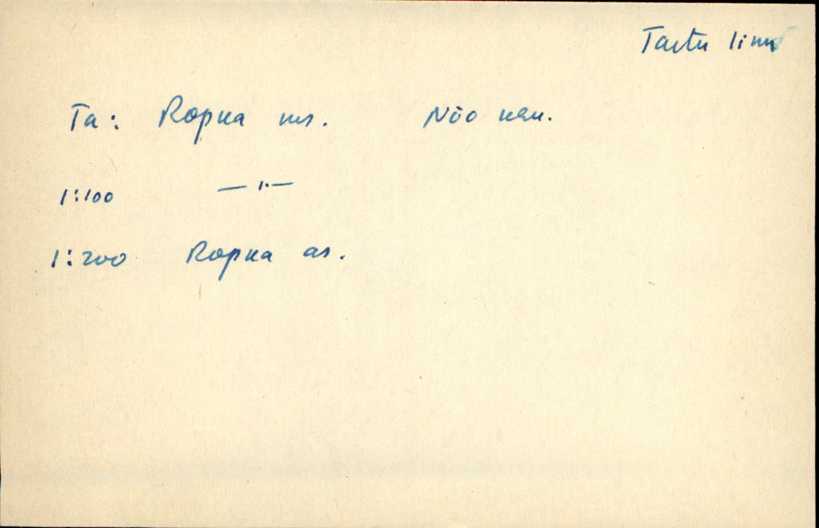 Tartu linn
Ta: Ropka ms. Nõo khn.
1:100 —"—
1:200 Ropka as.